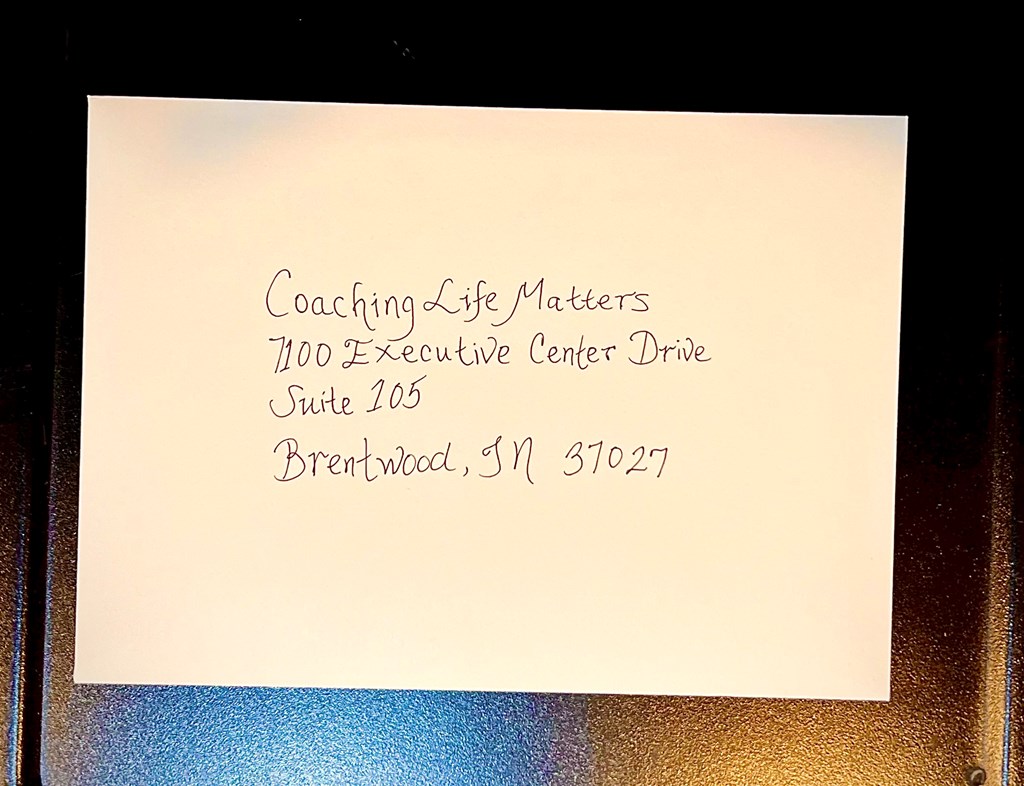 Coaching Life Matters
7100 Executive Center Drive
Suite 105
Brentwood, TN 37027